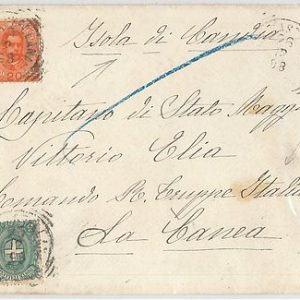 Isola di Candia
Capitano di Stato Magg
Vittorio Elia
Comando R. Truppe Italia
La Canea
20
98